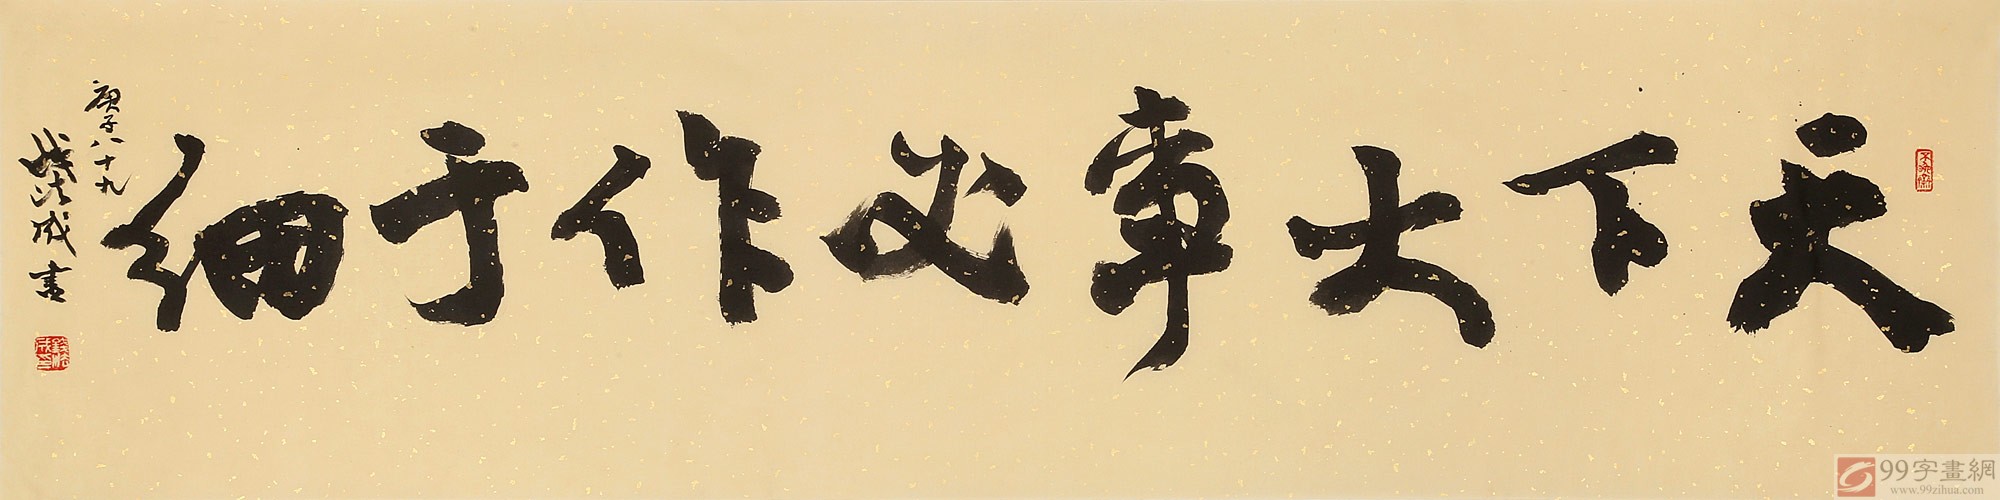 天下大事必作于细
庚子八十九
钱法成书
99字畫網
www.99zihua.com